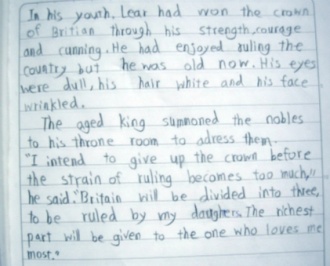 In his youth, Lear had won the crown
of Britian through his strength, courage
and cunning. He had enjoyed ruling the
country but he was old now. His eyes
were dull, his hair white and his face
wrinkled.
The aged king summoned the nobles
to his throne room to adress them.
"I intend to give up the crown before
the strain of ruling becomes too much,"
he said. "Britain will be divided into three,
to be ruled by my daughers. The richest
part will be given to the one who loves me
most."